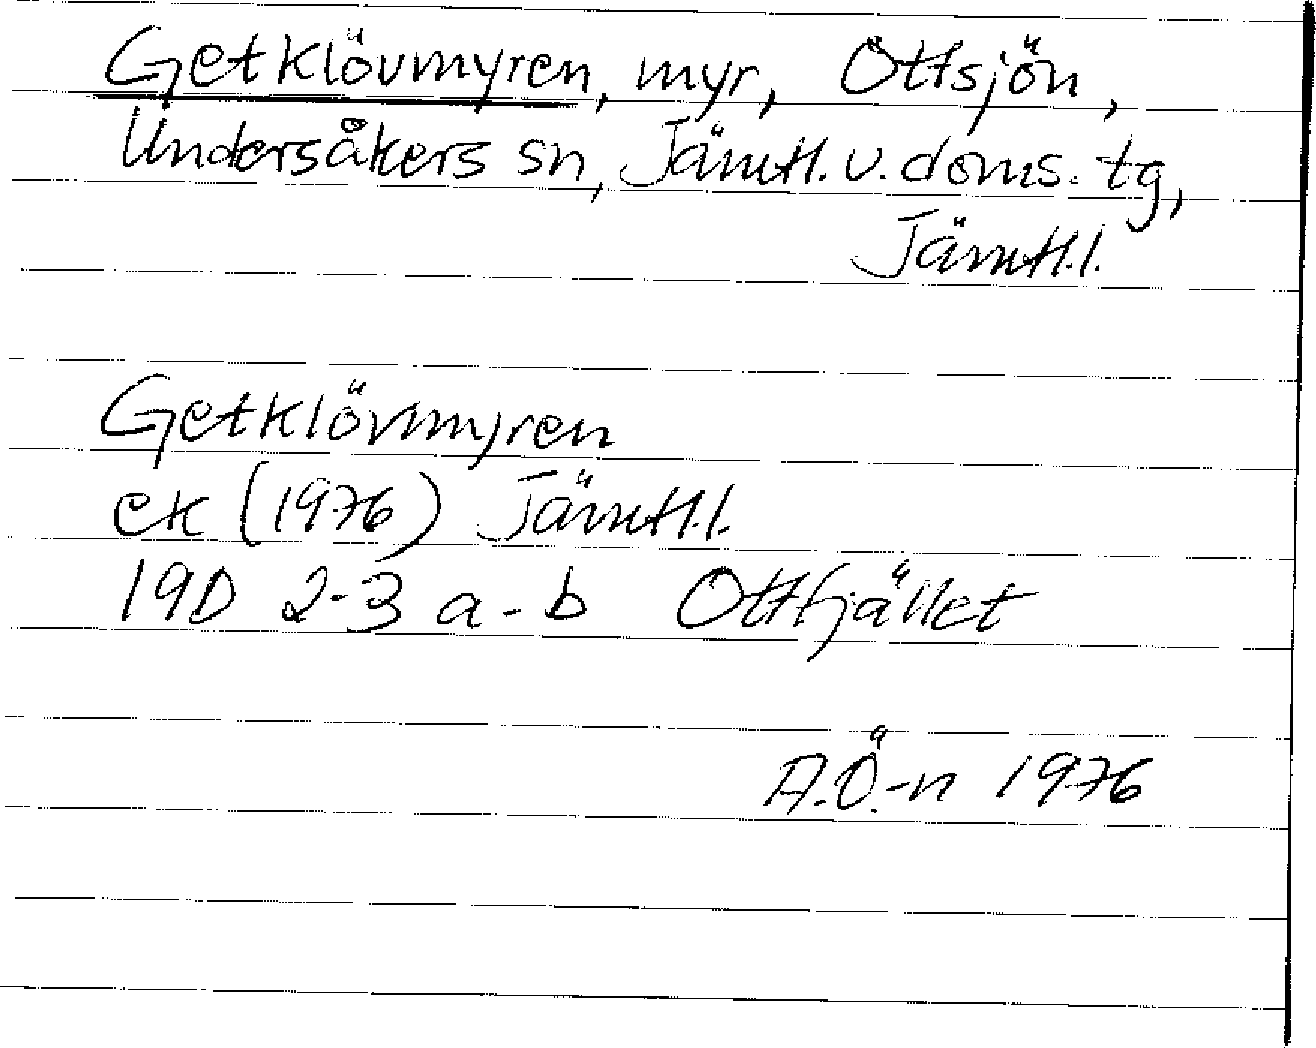 Getklövmyren, myr, Ottsjön,
Undersåkers sn, Jämtl. v. doms. tg,
Jämtl.l.
Getklövmyren
ek (1976) Jämtl.l.
19D 2-3 a-b Ottfjället
A.Ö.-n 1976